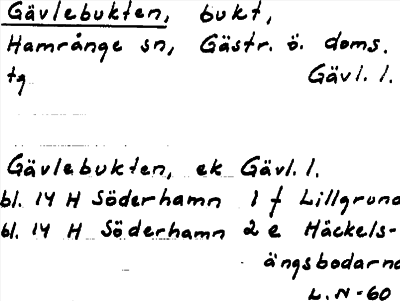 Gävlebukten, bukt,
Hamrånge sn, Gästr. ö. doms.
tg Gävl. l.
Gävlebukten, ek Gävl. l.
bl. 14 H Söderhamn 1 f Lillgrund
bl. 14 H Söderhamn 2 e Häckels-
ängsbodarna
L.N-60